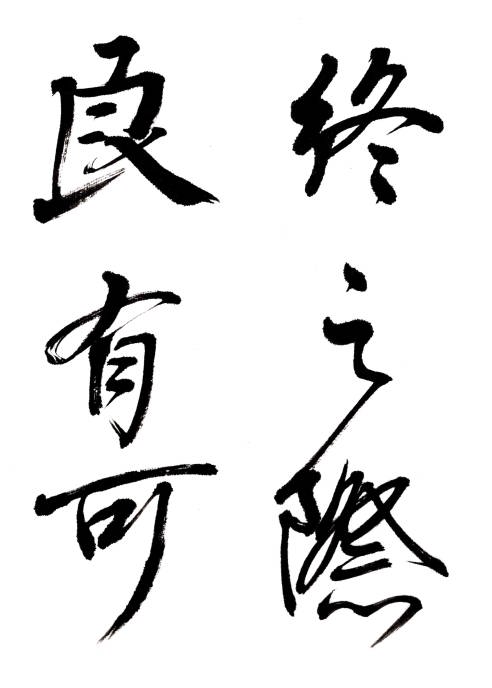 終之際
良有可